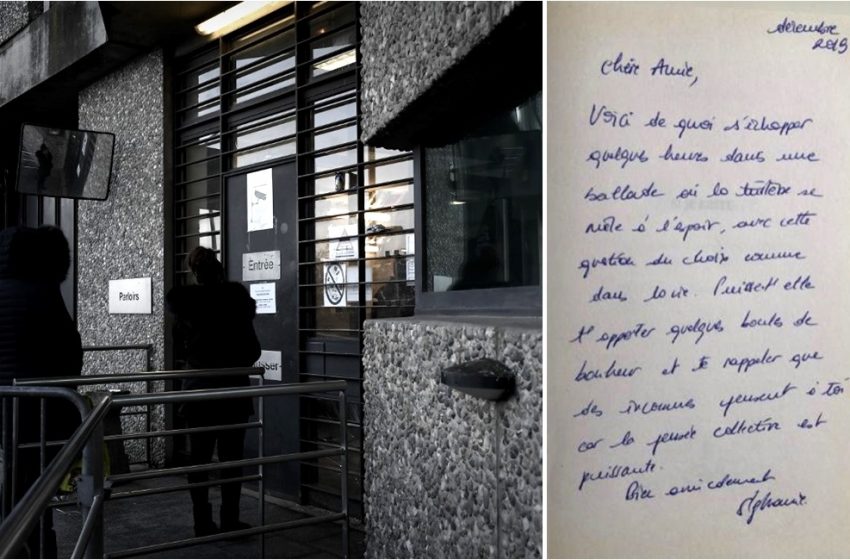 Entrée
Parloirs
décembre
2019
Chère Amie,
Voici de quoi s'échapper
quelques heures dans une
ballade où la se
mêle à l'espoir, avec cette
question du choix comme
dans la vie. Puisse-t'elle
t'apporter quelques boules de
bonheur et te rappeler que
des inconnus pensent à toi
car la pensée collective est
puissante.
Bien amicalement
Stéphanie.